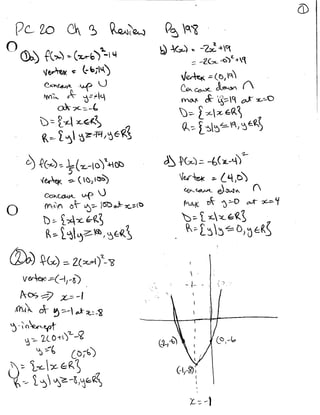 ①
PC 20 Ch 3 Review Pg 198
①a) f(x) = (x-6)²-14
vertex = (-6,14)
concave up U
min of y=-14
at x=-6
D={x|x∈R}
R={y|y≥-14, y∈R}
b) f(x) = -2x²+19
= -2(x-0)²+19
Vertex = (0,19)
Concave down ∩
max of y=19 at x=0
D={x|x∈R}
R={y|y≤19, y∈R}
c) f(x) = (x-10)²+100
vertex = (10,100)
concave up U
min of y=100 at x=10
D={x|x∈R}
R={y|y≥100, y∈R}
d) f(x) = -6(x-4)²
Vertex = (4,0)
concave down ∩
max of y=0 at x=4
D={x|x∈R}
R={y|y≤0, y∈R}
②a) f(x) = 2(x+1)²-8
vertex=(-1,-8)
AOS ⇒ x=-1
min of y=-1 at x=-8
y-intercept
y=2(0+1)²-8
y=-6 (0,-6)
D={x|x∈R}
R={y|y≥-8, y∈R}
(-2,-6)
(0,-6)
(-1,-8)
x=-1